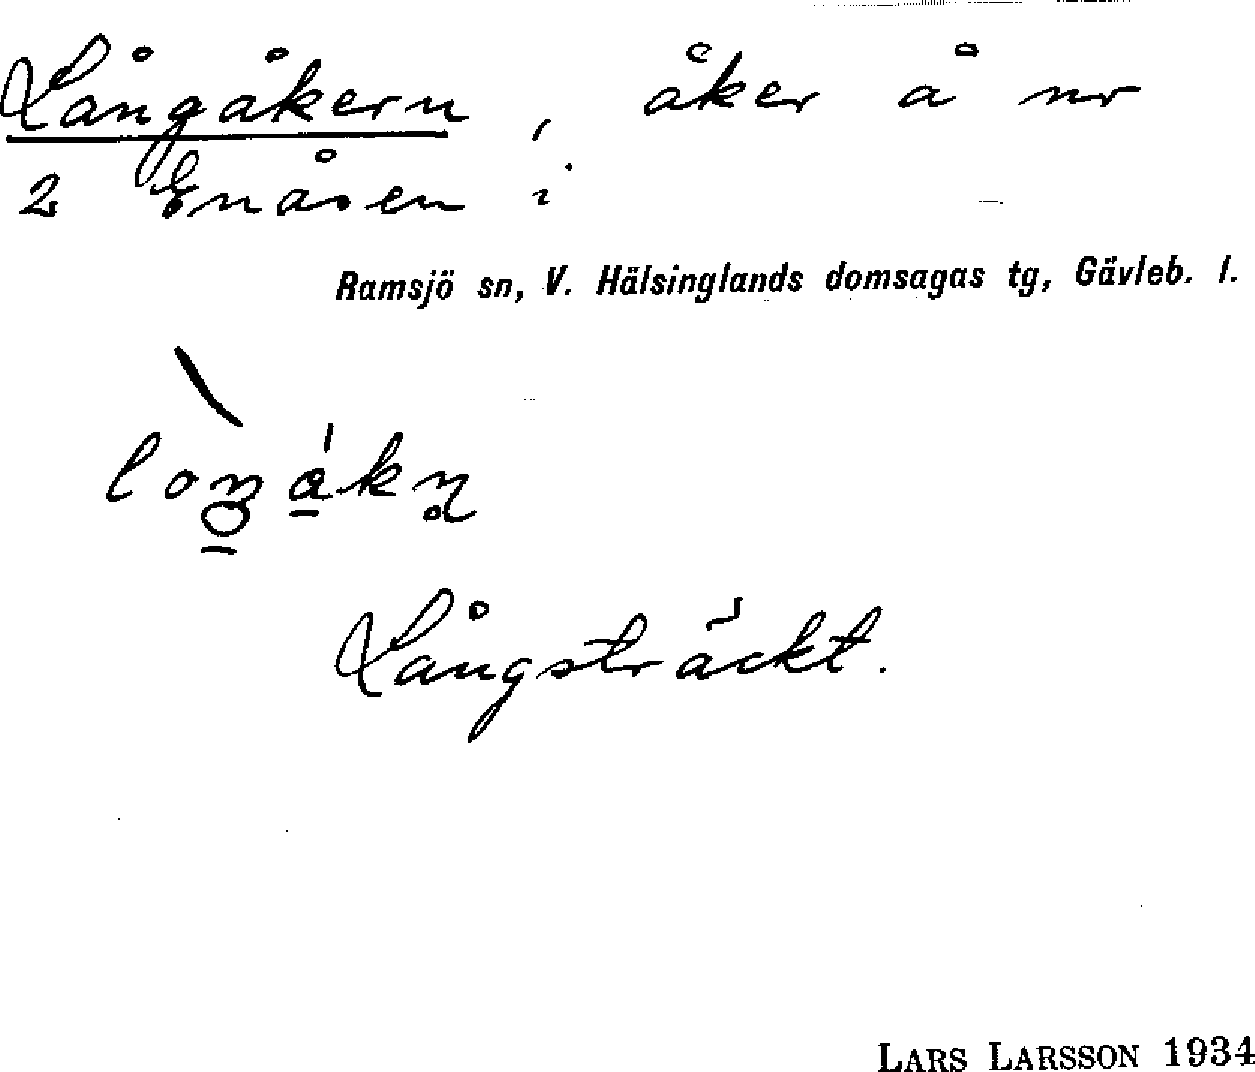 Långåkern, åker å nr
2 Enåsen i
Ramsjö sn, V. Hälsinglands domsagas tg, Gävleb. l.
Långsträckt.
LARS LARSSON 1934